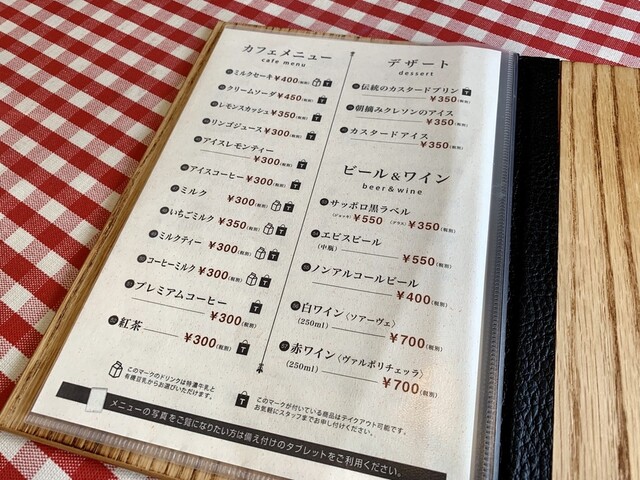 カフェメニュー
cafe menu
ミルクセーキ ¥400(税別) T
クリームソーダ ¥450(税別) T
レモンスカッシュ ¥350(税別) T
リンゴジュース ¥300(税別) T
アイスレモンティー
¥300(税別) T
アイスコーヒー ¥300(税別) T
ミルク ¥300(税別) T
いちごミルク ¥350(税別) T
ミルクティー ¥300(税別) T
コーヒーミルク ¥300(税別) T
プレミアムコーヒー
¥300(税別) T
紅茶 ¥300(税別) T
このマークのドリンクは特濃牛乳と
有機豆乳からお選びいただけます。
デザート
dessert
伝統のカスタードプリン T
¥350(税別)
朝摘みクレソンのアイス
¥350(税別)
カスタードアイス
¥350(税別)
ビール&ワイン
beer&wine
サッポロ黒ラベル
(ジョッキ) ¥550 (グラス) ¥350(税別)
エビスビール
(中瓶) ¥550(税別)
ノンアルコールビール
¥400(税別)
白ワイン〈ソアーヴェ〉
(250ml) ¥700(税別)
赤ワイン〈ヴァルポリチェッラ〉
(250ml) ¥700(税別)
T このマークが付いている商品はテイクアウト可能です。
お気軽にスタッフまでお申し付けください。
メニューの写真をご覧になりたい方は備え付けのタブレットをご利用ください。